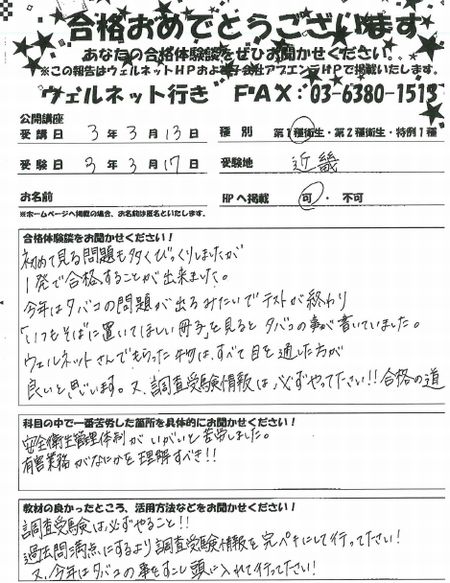 合格おめでとうございます
あなたの合格体験談をぜひお聞かせください。
※この報告はウェルネットHPおよ 子会社アプエンテHPで掲載いたします。
ウェルネット行き FAX:03-6380-1513
公開講座
受講日 3年3月13日 種別 第1種衛生・第2種衛生・特例1種
受験日 3年3月17日 受験地 近畿
お名前 HPへ掲載 可・不可
※ホームページへ掲載の場合、お名前は匿名といたします。
合格体験談をお聞かせください!
初めて見る問題も多くびっくりしましたが
1発で合格することが出来ました。
今年はタバコの問題が出るみたいでテストが終わり
「いつもそばに置いてほしい冊子」を見るとタバコの事が書いていました。
ウェルネットさんでもらった物は、すべて目を通した方が
良いと思います。又、調査受験情報は必ずやって下さい!!合格の道
科目の中で一番苦労した箇所を具体的にお聞かせください!
安全衛生管理体制がいがいと苦労しました。
有害業務がなにかを理解すべき!!
教材の良かったところ、活用方法などをお聞かせください!
調査受験は必ずやること!!
過去問満点にするより調査受験情報を完ペキにして行って下さい!
又、今年はタバコの事をすこし頭に入れて行って下さい!